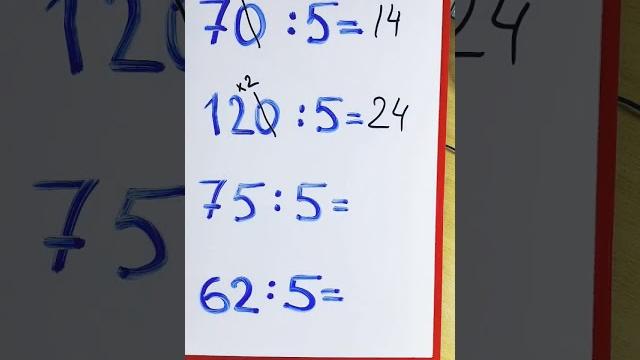 70 : 5 = 14
x2
120 : 5 = 24
75 : 5 =
62 : 5 =